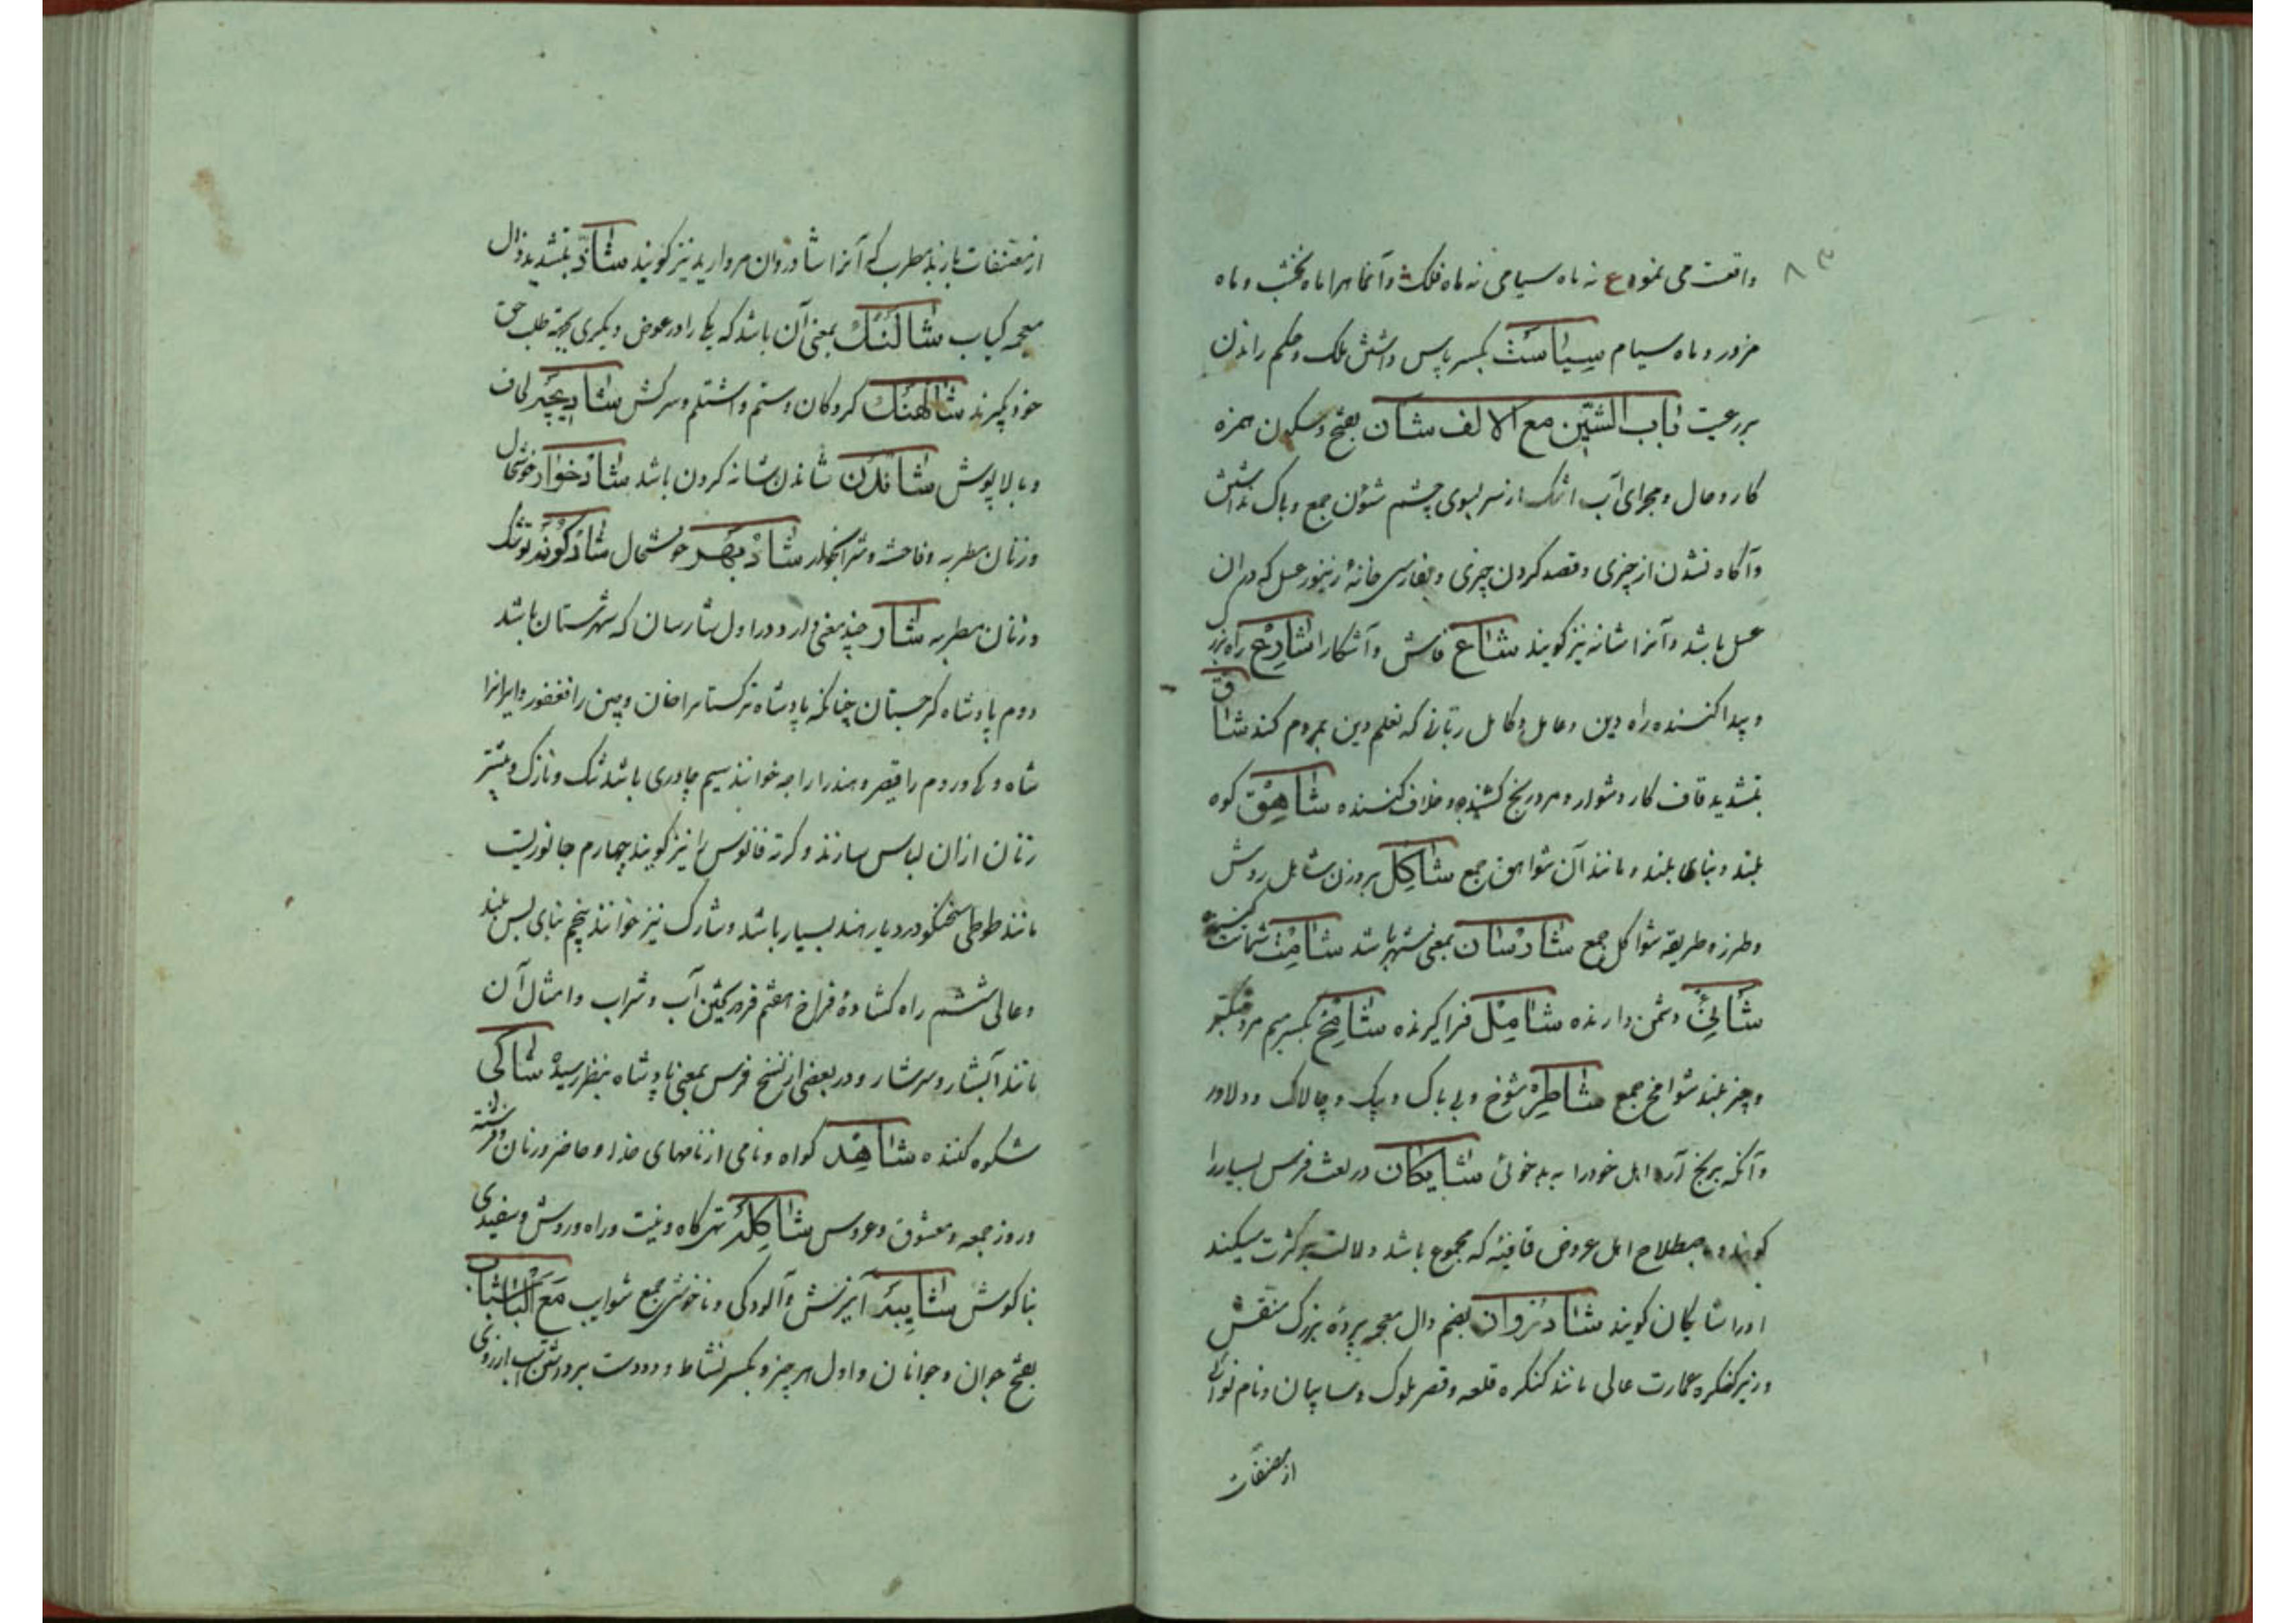 ۸۳
واقعت می نمود ع نه ماه سیامی نه ماه فلک و آنماهرا ماه نخشب و ماه
مزور و ماه سیام سِیٰاسَتْ بکسر پاس داشتن ملک و حکم راندن
بر رعیت باب الشین مع الالف شان بفتح و سکون همزه
کار و حال و مجرای آب اشک از سر بسوی چشم شئون جمع و باک نداشتن
و آگاه نشدن از چیزی و قصد کردن چیزی و بفارسی خانهٔ زنبور عسل که در ان
عسل باشد و آنرا شانه نیز گویند شاع فاش و آشکارا شارِع راه بزرگ
و پیدا کننده راه دین و عامل و کامل ربانی که تعلیم دین بمردم کند شاق
بتشدید قاف کار دشوار و مرد رنج کشنده و خلاف کننده شاهِق کوه
بلند و بنای بلند و مانند آن شواهق جمع شاکِل بر وزن شامل روش
و طرز و طریقه شواکل جمع شارسان بمعنی شهر باشد شامِت شماتت کننده
شانِئ دشمن دارنده شامِل فراگیرنده شامِخ بکسر میم مرد متکبر
و چیز بلند شوامخ جمع شاطِر شوخ و بی باک و پیک و چالاک و دلاور
و آنکه برنج آرد اهل خود را به بدخوئی شایکان در لغت فرس بسیار را
گویند و باصطلاح اهل عروض قافیه که مجموع باشد دلالت بر کثرت میکند
او را شایکان گویند شادُروان بضم دال معجمه پردهٔ بزرگ منقش
و زیر کنکره عمارت عالی مانند کنکره قلعه و قصر ملوک و سایبان و نام نوائی
از مصنفات
از مصنفات باربد مطرب که آنرا شادروان مروارید نیز گویند شاذّ بتشدید ذال
معجمه کباب شالَنک بمعنی آن باشد که یکی را در عوض دیگری بجهة طلب حق
خود گیرند شالهنک گروکان و ستم و اشتلم و سرکش شادیچه لحاف
و بالاپوش شاندن شاندن شانه کردن باشد شادخوار خوشحال
و زنان مطربه و فاحشه و شرابخوار شادبهر خوشحال شادکونه توشک
و زنان مطربه شار چند معنی دارد اول شارسان که شهرستان باشد
دوم پادشاه کرجستان چنانکه پادشاه ترکستانرا خان و چین را فغفور و ایرانرا
شاه و کی و روم را قیصر و هند را راجه خوانند سیم چادری باشد تنک و نازک و بیشتر
زنان ازان لباس سازند و کرته فانوس را نیز گویند چهارم جانوریست
مانند طوطی سخنکو در دیار هند بسیار باشد و شارک نیز خوانند پنجم بنای بس بلند
و عالی ششم راه کشادهٔ فراخ هفتم فرو ریختن آب و شراب و امثال آن
مانند آبشار و سرشار و در بعضی از نسخ فرس بمعنی پادشاه بنظر رسیده شاکی
شکوه کننده شاهِد گواه و نامی از نامهای خدا و حاضر و زنان و فرشته
و روز جمعه و معشوق و عروس شاکِله تهی گاه و نیت و راه و روش و سفیدی
بناکوش شایبه آمیزش و آلودگی و ناخوشی جمع شوایب مع الباء شباب
بفتح جوان و جوانان و اول هر چیز و بکسر نشاط و دو دست برداشتن اسب از روی